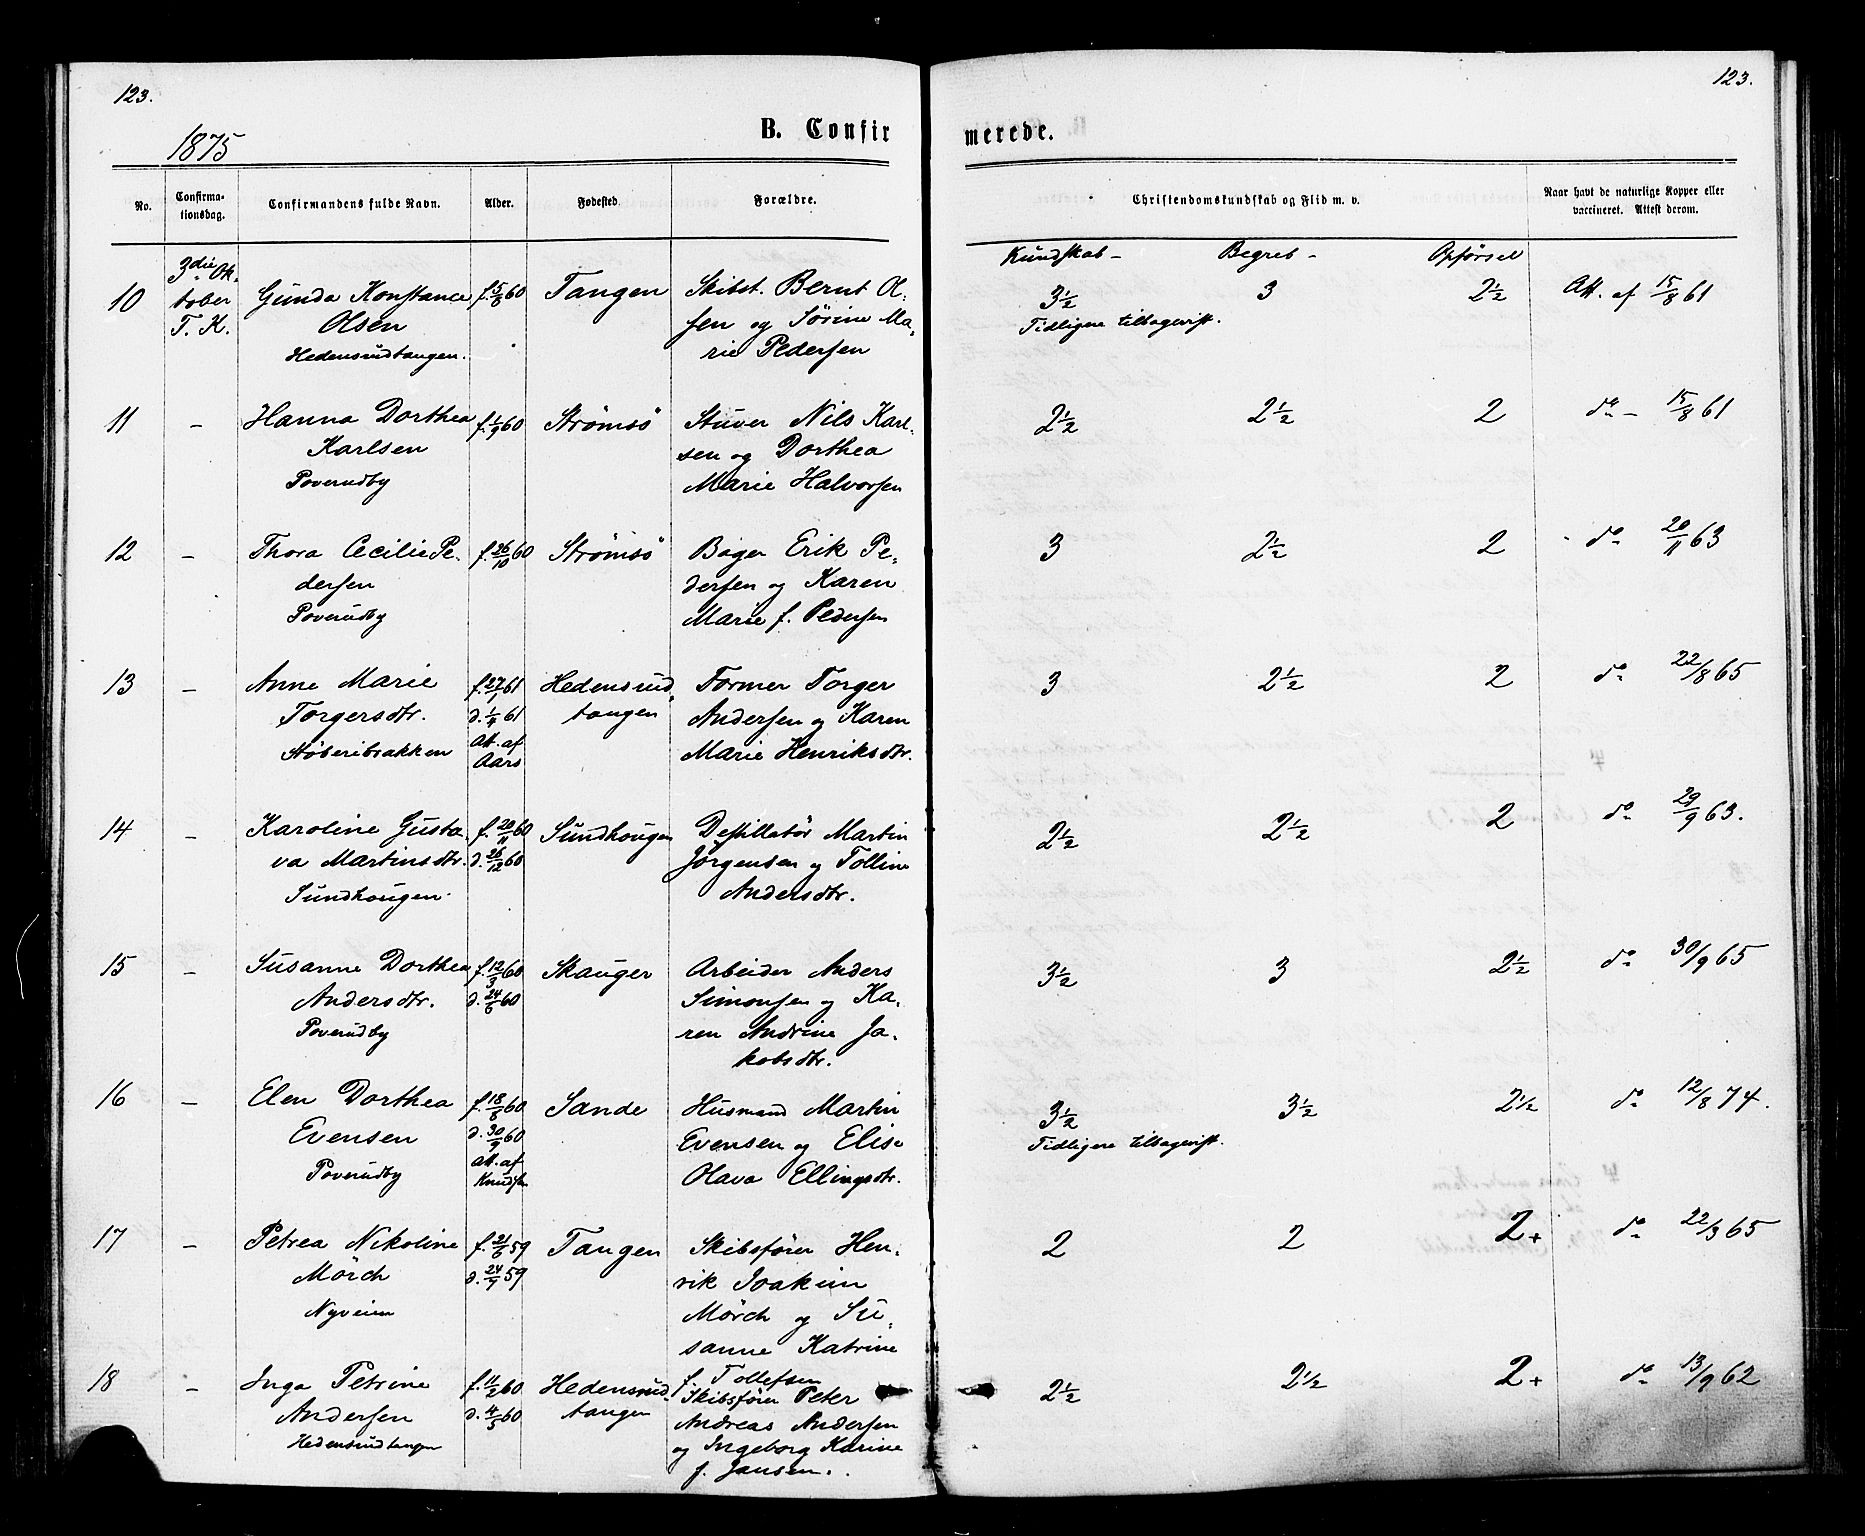 123.
123.
1875
B. Confir
merede.
No.
Confirma-
tionsdag.
Confirmandens fulde Navn.
Alder.
Fødested
Forældre.
Christendomskundskab og Flid m. v.
Naar havt de naturlige Kopper eller
vaccineret. Attest derom.
Kundskab - Begreb - Opførsel
10 3die Ok- Gunda Konstance f. 5/8 60 Tangen Skibst. Bernt Ol- 3½ 3 2½ Att. af 15/8 61
tober Olsen sen og Sørine Ma- Tidligere tilbagevist.
T. K. Hedensrudtangen. rie Pedersen
11 - Hanna Dorthea f. 1/9 60 Strømsö Stuver Nils Karl- 2½ 2½ 2 do - 15/8 61
Karlsen sen og Dorthea
Poverudby Marie Halvorsen
12 - Thora Cecilie Pe- f. 26/10 60 Strømsö Bager Erik Pe- 3 2½ 2 do 20/11 63
dersen dersen og Karen
Poverudby Marie f. Pedersen
13 - Anne Marie f. 27/1 61 Hedensrud- Former Torger 3 2½ 2 do 22/8 65
Torgersdtr. d. 1/4 61 tangen Andersen og Karen
Støberibrakken Att. af Marie Henriksdtr.
Aars
14 - Karoline Gusta- f. 20/11 60 Sundhougen Destillatör Martin 2½ 2½ 2 do 29/9 63.
va Martinsdtr. d. 26/12 60 Jörgensen og Tolline
Sundhougen Andersdtr.
15 - Susanne Dorthea f. 12/3 60 Skauger Arbeider Anders 3½ 3 2½ do 30/9 65
Andersdtr. d. 24/6 60 Simonsen og Ka-
Poverudby ren Andrine Ja-
kobsdtr.
16 - Elen Dorthea f. 18/8 60 Sande Husmand Martin 3½ 3½ 2½ do 12/8 74.
Evensen d. 30/9 60 Evensen og Elise Tidligere tilbagevist.
Poverudby Att. af Olava Ellingsdtr.
Knudsen
17 - Petrea Nikoline f. 21/6 59 Tangen Skibsfører Hen- 2 2 2+ do 22/3 65
Mörch d. 24/7 59 rik Joakim
Nyveien Mörch og Su-
sanne Katrine
f. Tollefsen
18 - Inga Petrine f. 11/2 60 Hedensrud- Skibsfører Peter 2½ 2½ 2+ do 13/9 62
Andersen d. 4/5 60 tangen Andreas Andersen
Hedensrudtangen og Ingeborg Karine
f. Jansen.